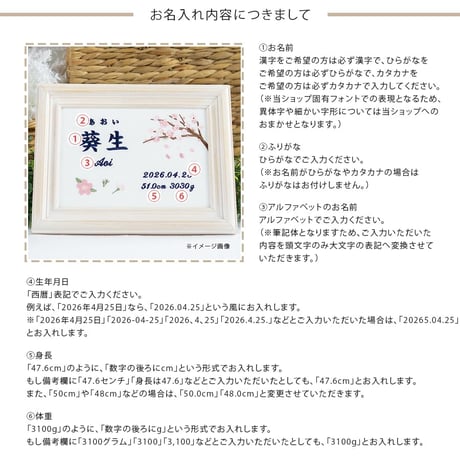 お名入れ内容につきまして
①お名前
漢字をご希望の方は必ず漢字で、ひらがなを
ご希望の方は必ずひらがなで、カタカナを
ご希望の方は必ずカタカナで入力してください。
(※当ショップ固有フォントでの表現となるため、
異体字や細かい字形については当ショップへの
おまかせとなります。)
②ふりがな
ひらがなでご入力ください。
(※お名前がひらがなやカタカナの場合は
ふりがなはお付けしません。)
③アルファベットのお名前
アルファベットでご入力ください。
(※筆記体となりますため、ご入力いただいた
内容を頭文字のみ大文字の表記へ変換させて
いただきます。)
②あおい
①葵生
③Aoi
④
2026.04.25
51.0cm 3030g
⑤ ⑥
※イメージ画像
④生年月日
「西暦」表記でご入力ください。
例えば、「2026年4月25日」なら、「2026.04.25」という風にお入れします。
※「2026年4月25日」「2026-04-25」「2026、4、25」「2026.4.25.」などとご入力いただいた場合は、「20265.04.25」
とお入れします。
⑤身長
「47.6cm」のように、「数字の後ろにcm」という形式でお入れします。
もし備考欄に「47.6センチ」「身長は47.6」などとご入力いただいたとしても、「47.6cm」とお入れします。
また、「50cm」や「48cm」などの場合は、「50.0cm」「48.0cm」と変更させていただきます。
⑥体重
「3100g」のように、「数字の後ろにg」という形式でお入れします。
もし備考欄に「3100グラム」「3100」「3,100」などとご入力いただいたとしても、「3100g」とお入れします。